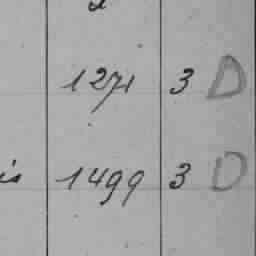 1271 3 D
is 1499 3 D